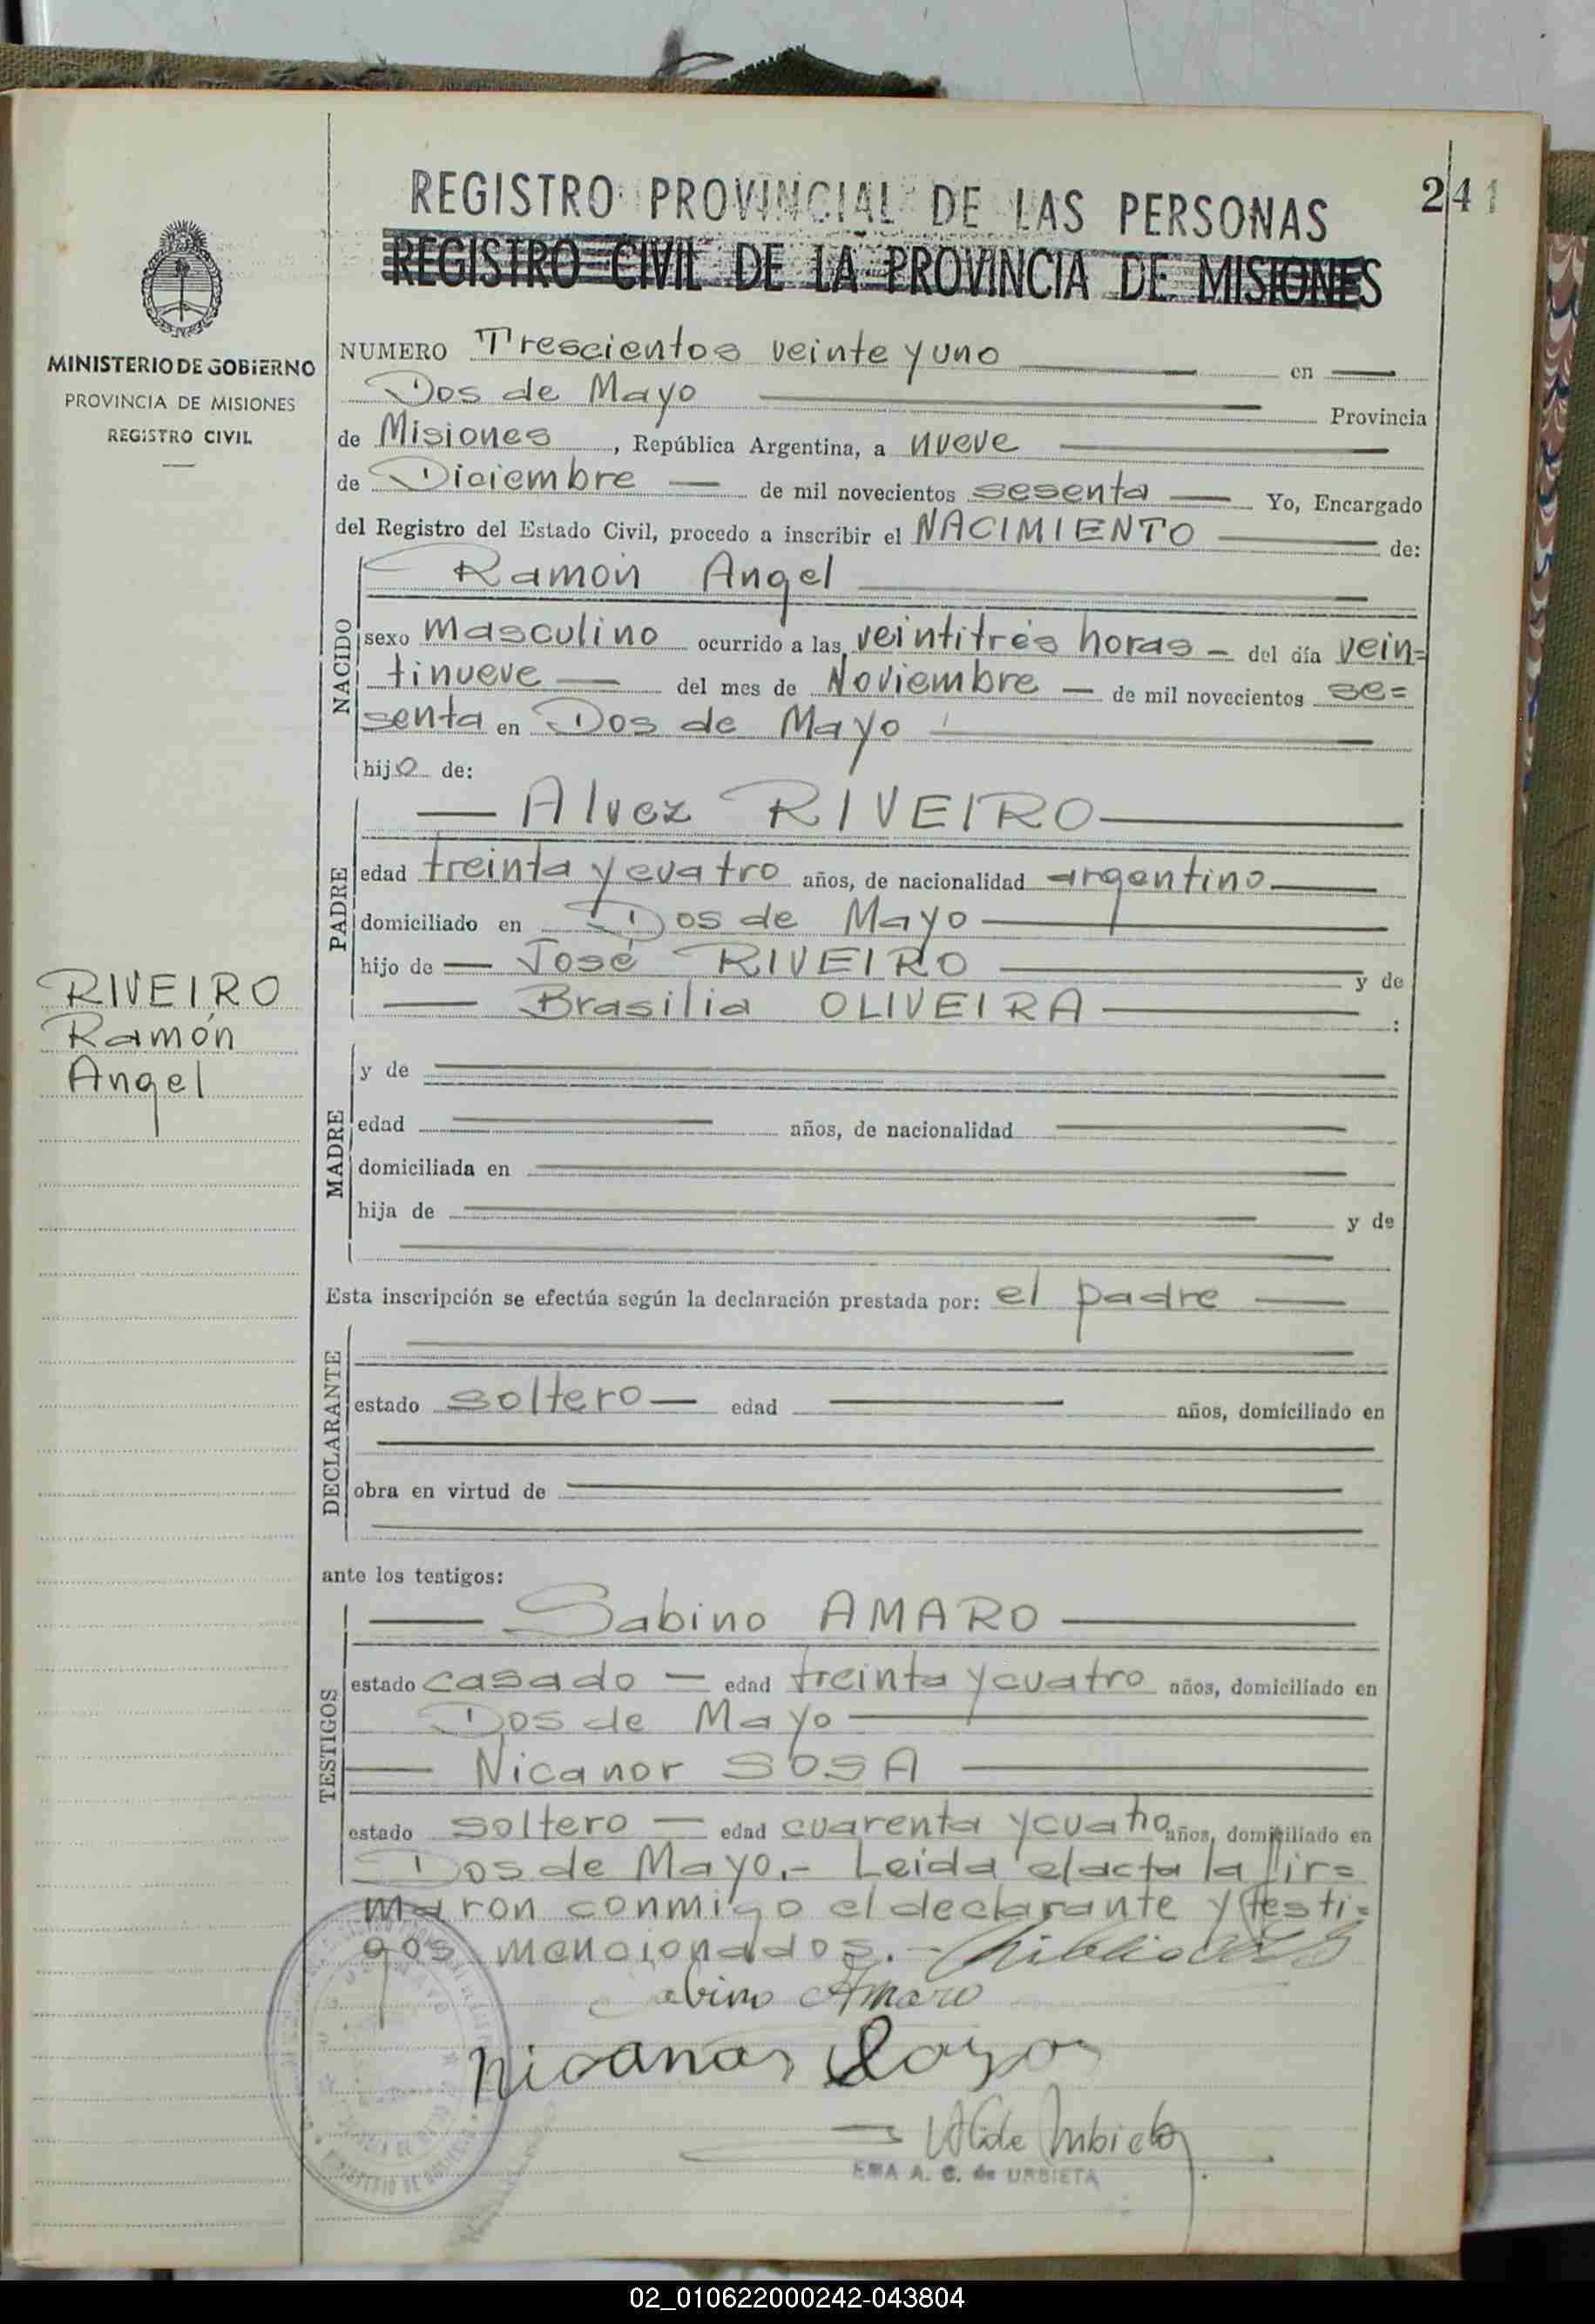 REGISTRO PROVINCIAL DE LAS PERSONAS
241
REGISTRO CIVIL DE LA PROVINCIA DE MISIONES
MINISTERIO DE GOBIERNO
PROVINCIA DE MISIONES
REGISTRO CIVIL
NUMERO Trescientos veinte y uno en
Dos de Mayo Provincia
de Misiones, República Argentina, a nueve
de Diciembre de mil novecientos sesenta Yo, Encargado
del Registro del Estado Civil, procedo a inscribir el NACIMIENTO de:
NACIDO
Ramón Angel
sexo masculino ocurrido a las veintitrés horas - del día vein=
tinueve del mes de Noviembre de mil novecientos se=
senta en Dos de Mayo
hijo de:
PADRE
Alvez RIVEIRO
edad treinta y cuatro años, de nacionalidad argentino
domiciliado en Dos de Mayo
hijo de José RIVEIRO y de
Brasilia OLIVEIRA :
RIVEIRO
Ramón
Angel
MADRE
y de
edad años, de nacionalidad
domiciliada en
hija de y de
Esta inscripción se efectúa según la declaración prestada por: el padre
DECLARANTE
estado soltero edad años, domiciliado en
obra en virtud de
ante los testigos:
TESTIGOS
Sabino AMARO
estado casado edad treinta y cuatro años, domiciliado en
Dos de Mayo
Nicanor SOSA
estado soltero edad cuarenta y cuatro años, domiciliado en
Dos de Mayo.- Leída el acta la fir=
maron conmigo el declarante y testi=
gos mencionados.-
Sabino Amaro
EMA A. C. de URBIETA
02_010622000242-043804